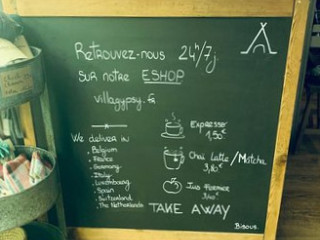 Retrouvez-nous 24h/7j.
sur notre ESHOP
villagypsy.fr
We deliver in
. Belgium
. France
. Germany
. Italy
. Luxembourg
. Spain
. Switzerland
. The Netherlands
Expresso
1,50€
Chai Latte/Matcha
Jus Pomme
TAKE AWAY
Bisous.